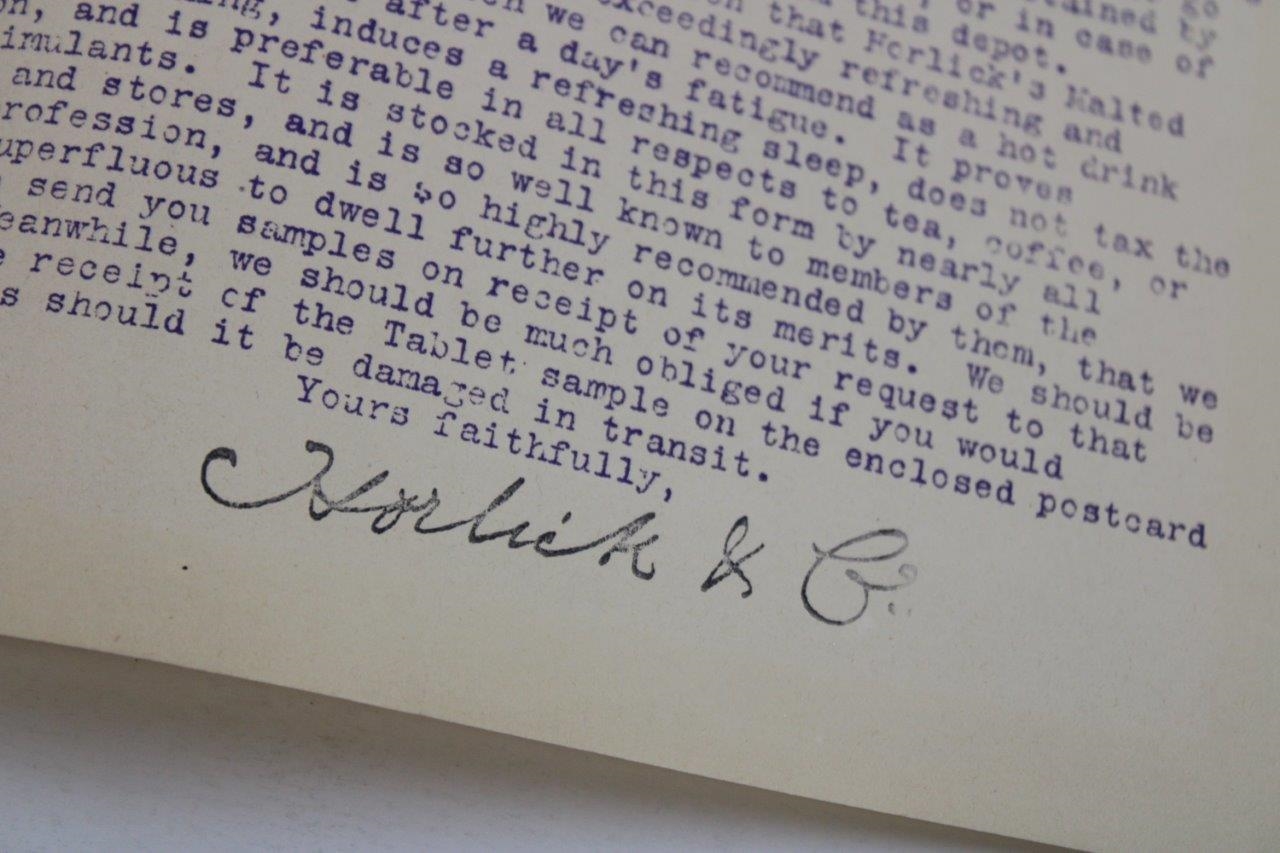 go
tained by
, or in case of
this depot.
that Horlick's Malted
exceedingly refreshing and
we can recommend as a hot drink
after a day's fatigue. It proves
induces a refreshing sleep, does not tax the
on, and is preferable in all respects to tea, coffee, or
imulants. It is stocked in this form by nearly all
and stores, and is so well known to members of the
rofession, and is so highly recommended by them, that we
uperfluous to dwell further on its merits. We should be
send you samples on receipt of your request to that
eanwhile, we should be much obliged if you would
e receipt of the Tablet sample on the enclosed postcard
s should it be damaged in transit.
Yours faithfully,
Horlick & Co.